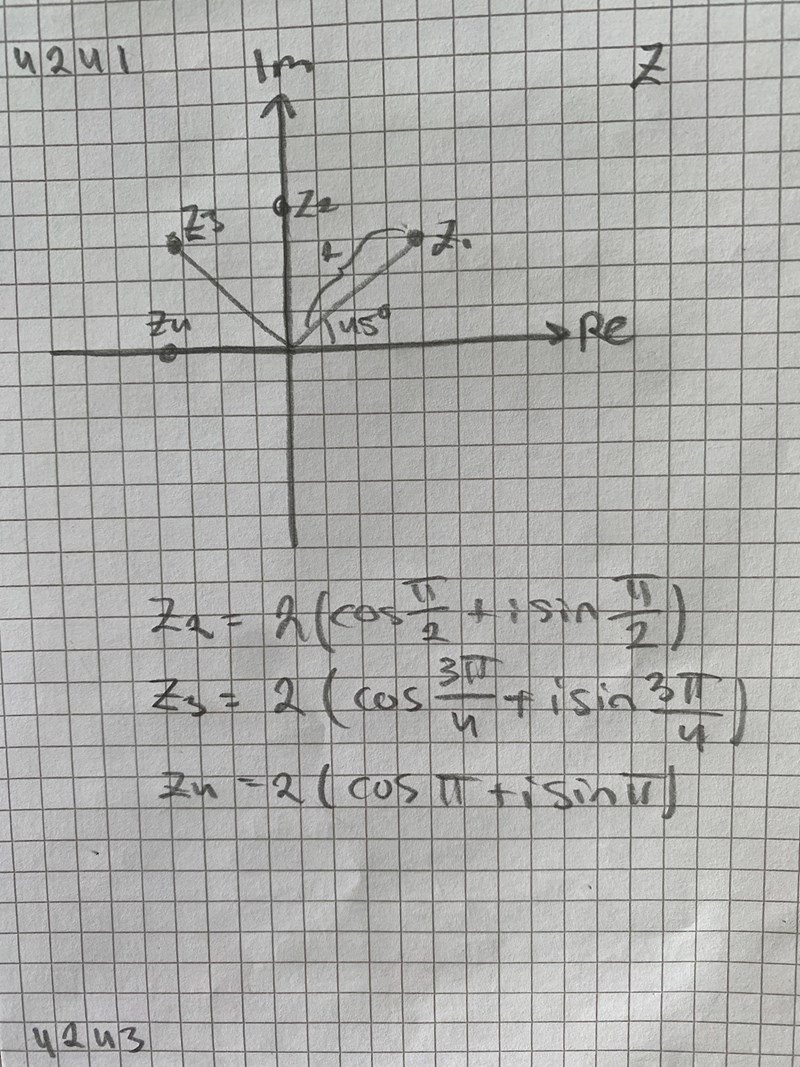 4241
Im
Z
Z3
Z2
Z1
2
Z4
45°
Re
Z2 = 2(cos π/2 + i sin π/2)
Z3 = 2(cos 3π/4 + i sin 3π/4)
Z4 = 2(cos π + i sin π)
4243